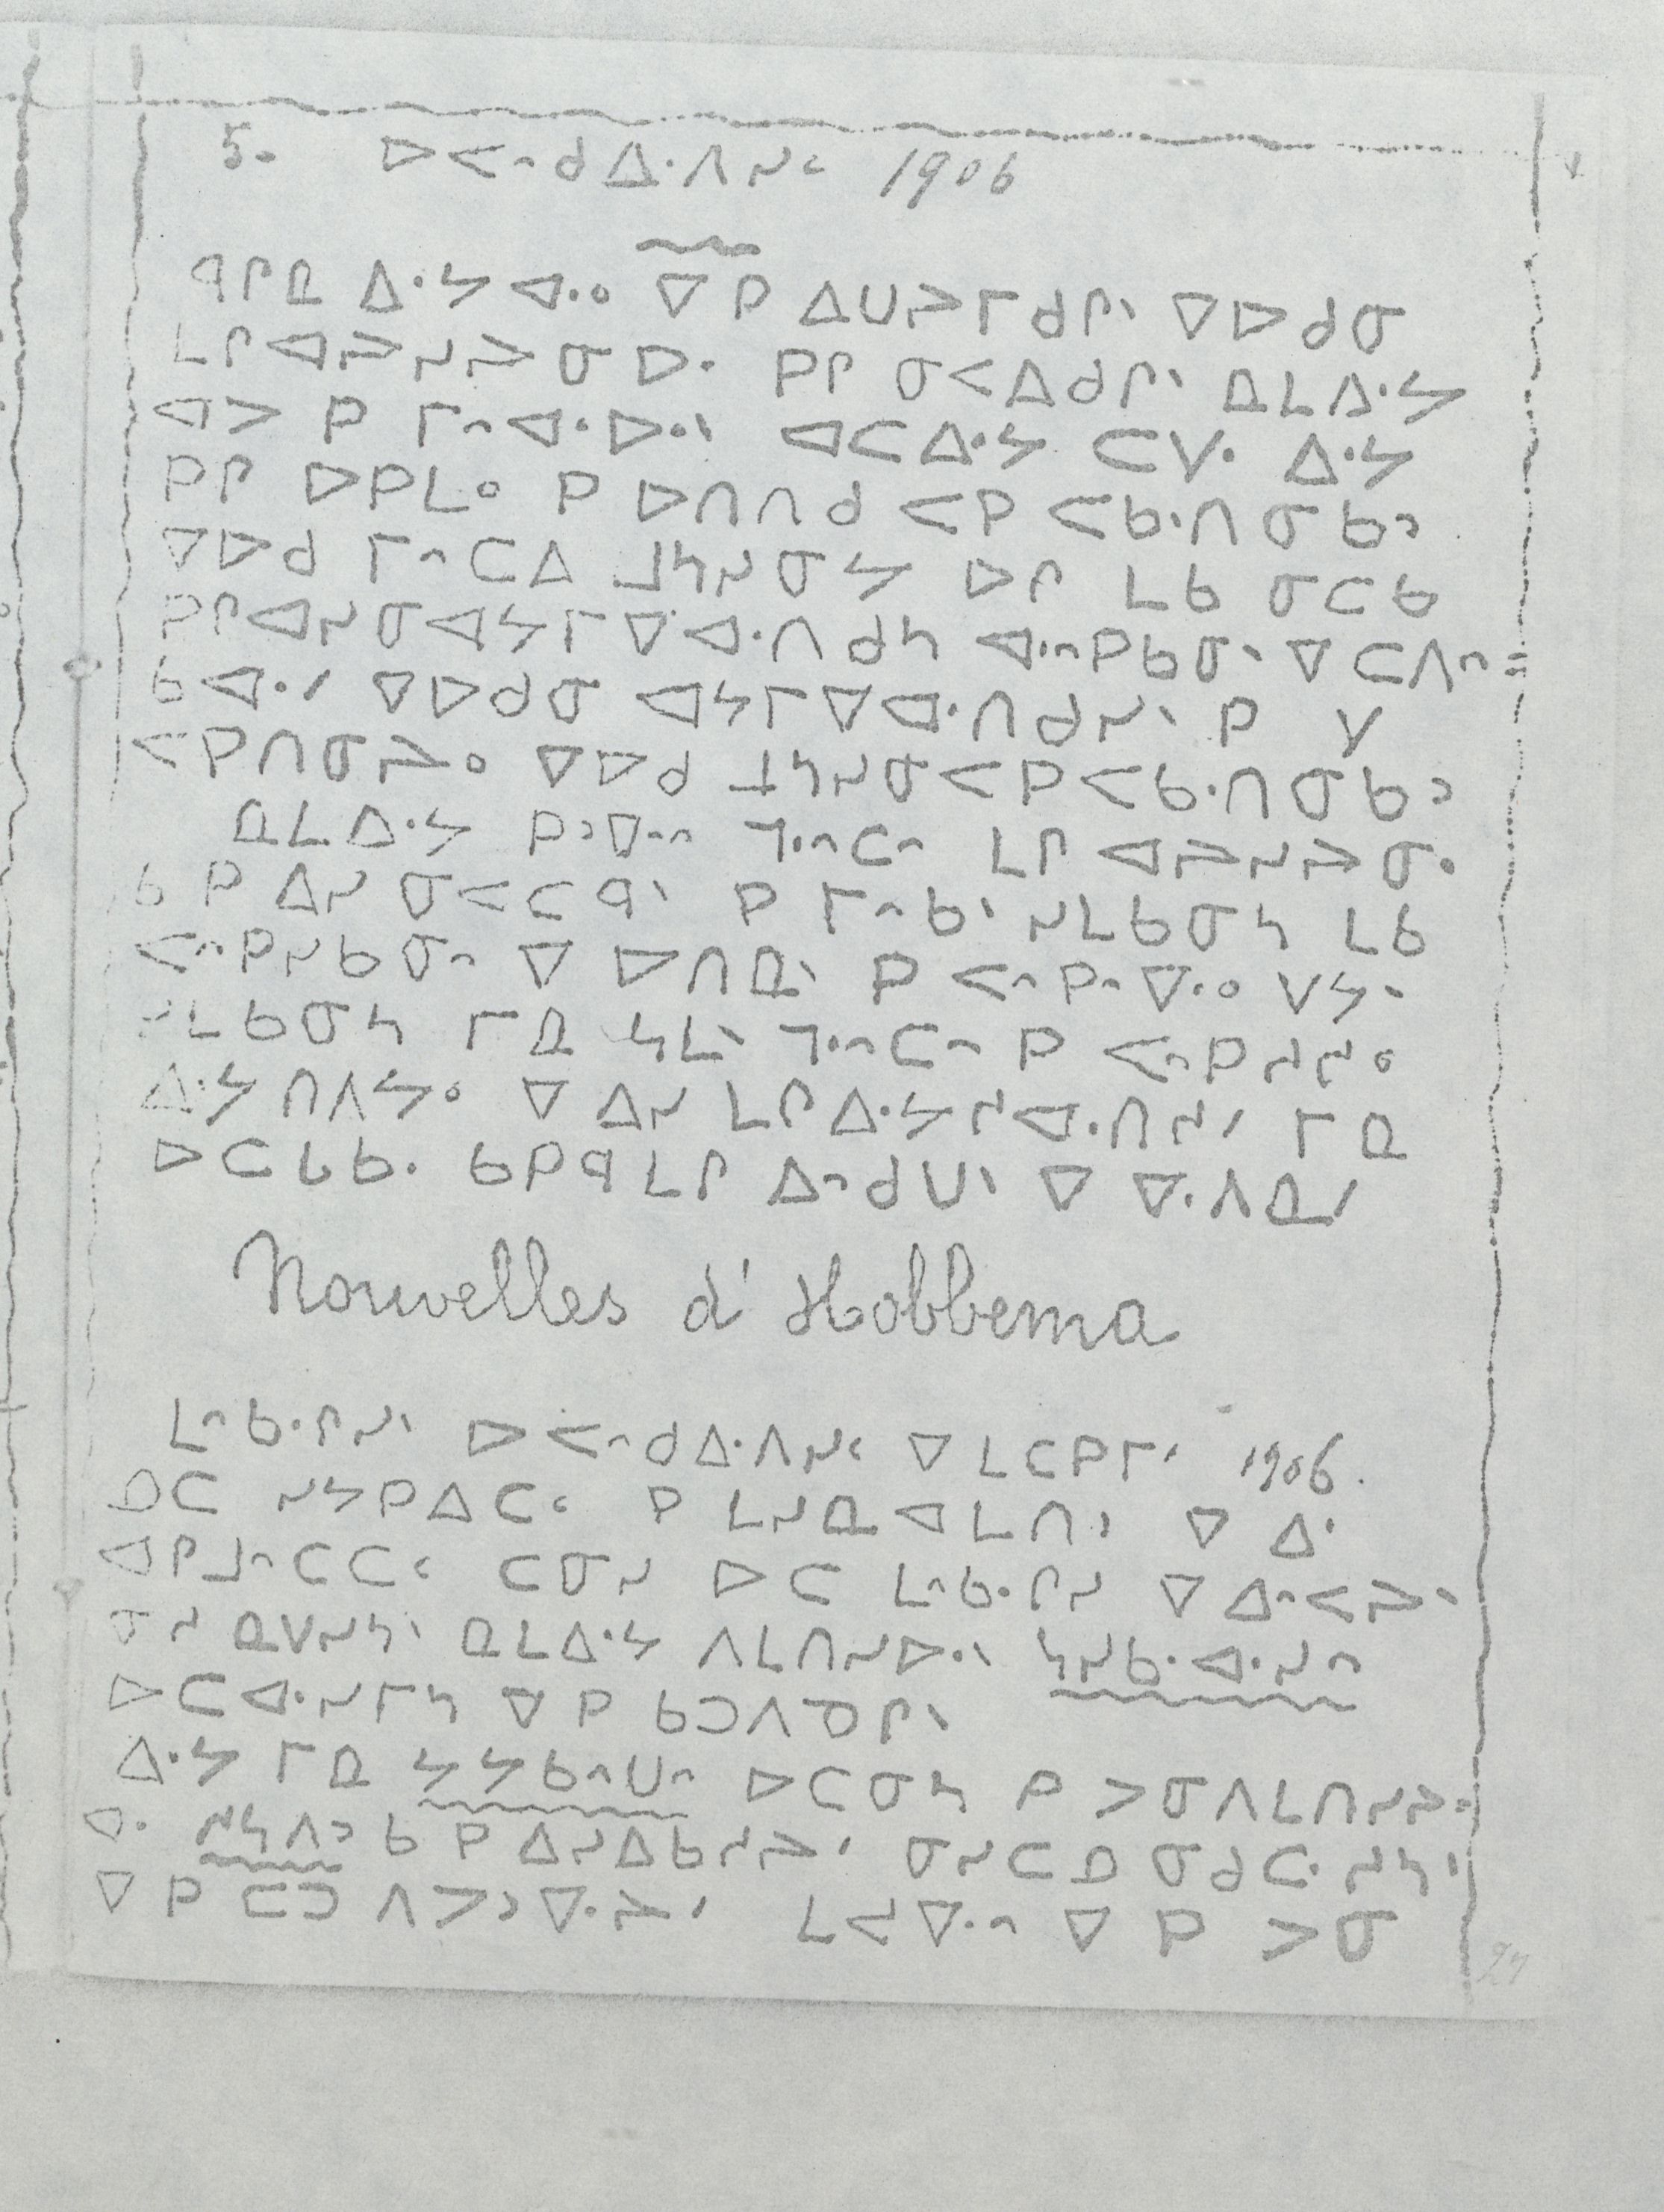 5. ᐅᐸᐢᑯᐃᐧᐱᓯᑦ 1906
ᑫᒋᓇ ᐃᐧᔭ ᐊᐧᐤ ᐁ ᑭ ᐃᑌᔨᒥᑯᒋᐠ ᐁᐅᑯᓂ
ᒪᒋᐊᔨᓯᔨᓂᐅᐧ ᑭᒋ ᓂᐸᐃᑯᒋᐠ ᓇᒪᐃᐧᔭ
ᐊᔪ ᑭ ᒥᐢᐊᐧᐅᐧᐠ ᐊᑕᐃᐧᔭ ᑕᐯᐧ ᐃᐧᔭ
ᑭᒋ ᐅᑭᒪᐤ ᑭ ᐅᑎᑎᑯ ᐸᑭ ᐸᑲᐧᑎᓂᑲᐣ
ᐁᐅᑯ ᒥᐢᑕᐃ ᒧᓴᓯᓂᔭ ᐅᒋ ᒪᑲ ᓂᑕᑲ
ᑭᒋᐊᓯᓂᐊᔭᒥᐁᐊᐧᑎᑯᓴ ᐊᐧᐢᑭᑲᓂᐠ ᐁ ᑕᐱᐢ=
ᑲᐊᐧᐟ ᐁᐅᑯᓂ ᐊᔭᒥᐁᐊᐧᑎᑯᓯᐠ ᑭ ᐯ
ᐸᑭᑎᓂᔨᐤ ᐁᐅᑯ ᒧᓴᓯᓂᐸᑭᐸᑲᐧᑎᓂᑲᐣ
ᓇᒪᐃᐧᔭ ᑭᐣᐁᐧᐢ ᒣᐧᐢᑕᐢ ᒪᒋ ᐊᔨᓯᔨᓂᐧ
ᑲ ᑭ ᐃᓯ ᓂᐸᑕᑫᐠ ᑭ ᒥᐢᑲᐠ ᓯᒪᑲᓂᓴ ᒪᑲ
ᐸᐢᑭᓯᑲᓂᐢ ᐁ ᐅᑎᓇᐠ ᑭ ᐸᐢᑭᐢᐁᐧᐤ ᐯᔭᐠ
ᓯᒪᑲᓂᓴ ᒥᓇ ᓴᒪᐠ ᒣᐧᐢᑕᐢ ᑭ ᐸᐢᑭᓱᓱᐤ
ᐃᐧᔭ ᑎᐱᔭᐤ ᐁ ᐃᓯ ᒪᒋᐃᐧᔭᓱᐊᐧᑎᓱᐟ ᒥᓇ
ᐅᑕᒐᑲᐧ ᑲᑭᑫ ᒪᒋ ᐃᐢᑯᑌᐠ ᐁ ᐁᐧᐱᓇᐟ
Nouvelles d' Hobbema
ᒪᐢᑲᐧᒋᓯᐠ ᐅᐸᐢᑯᐃᐧᐱᓯᑦ ᐁ ᒪᑕᑭᒥᐟ 1906.
ᓄᑕ ᓯᔭᑭᐃᑕᑦ ᑭ ᒪᓯᓇᐊᒪᑎᐣ ᐁ ᐃᐧ
ᐊᑭᒧᐢᑕᑕᑦ ᑕᓂᓯ ᐅᑕ ᒪᐢᑲᐧᒋᓯ ᐁ ᐃᐢᐸᔨᐠ
ᓂᓱ ᓇᐯᓯᓴᐠ ᓇᒪᐃᐧᔭ ᐱᒪᑎᓯᐅᐧᐠ ᓴᓯᑲᐧᐊᐧᓯᐢ
ᐅᑕᐊᐧᓯᒥᓴ ᐁ ᑭ ᑲᑐᐱᓀᒋᐠ
ᐃᐧᔭ ᒥᓇ ᔭᔭᑲᐢᑌᐢ ᐅᑕᓂᓴ ᑭ ᐳᓂᐱᒪᑎᓯᔨᐧ
ᐊᐧ ᓱᓴᐱᐣ ᑲ ᑭ ᐃᓯᐃᑲᓱᔨᐟ ᓂᓯᑕᓄ ᓂᑯᑕᐧᓱᓴᑊ
ᐁ ᑭ ᑕᑐ ᐱᔳᐣᐁᐧᔨᐟ ᒪᐊᐁᐧᐢ ᐁ ᑭ ᐳᓂ